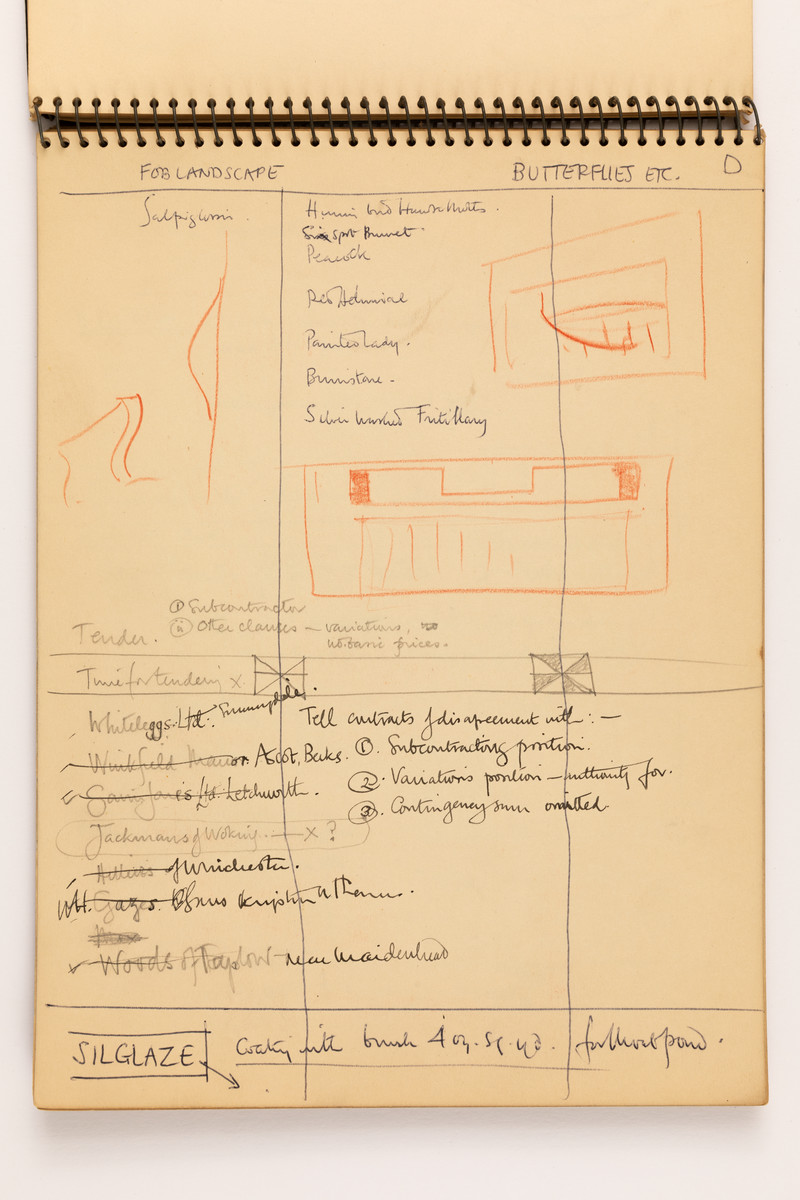 FOB LANDSCAPE
BUTTERFLIES ETC.
D
Salpiglossis.
Humming bird Hawk Moths.
Six spot Burnet.
Peacock
Red Admiral
Painted Lady.
Brimstone -
Silver washed Fritillary
① Subcontractor
Tender.
ⅱ Other clauses — variations, no
no basic prices.
Time for tendering x
Whiteleggs Ltd. Sunningdale.
Winkfield Manor Ascot, Berks.
Ltd. Letchworth.
Jackmans of Woking. — x ?
Hilliers of Winchester.
WH. Gaze &
Woods of Taplow near Maidenhead
Tell contracts of disagreement with: —
①. Subcontracting position.
②. Variations position — authority for.
③. Contingency sum omitted
SILGLAZE
Coating with brush 4 oz. sq. yd. for Moat pond.